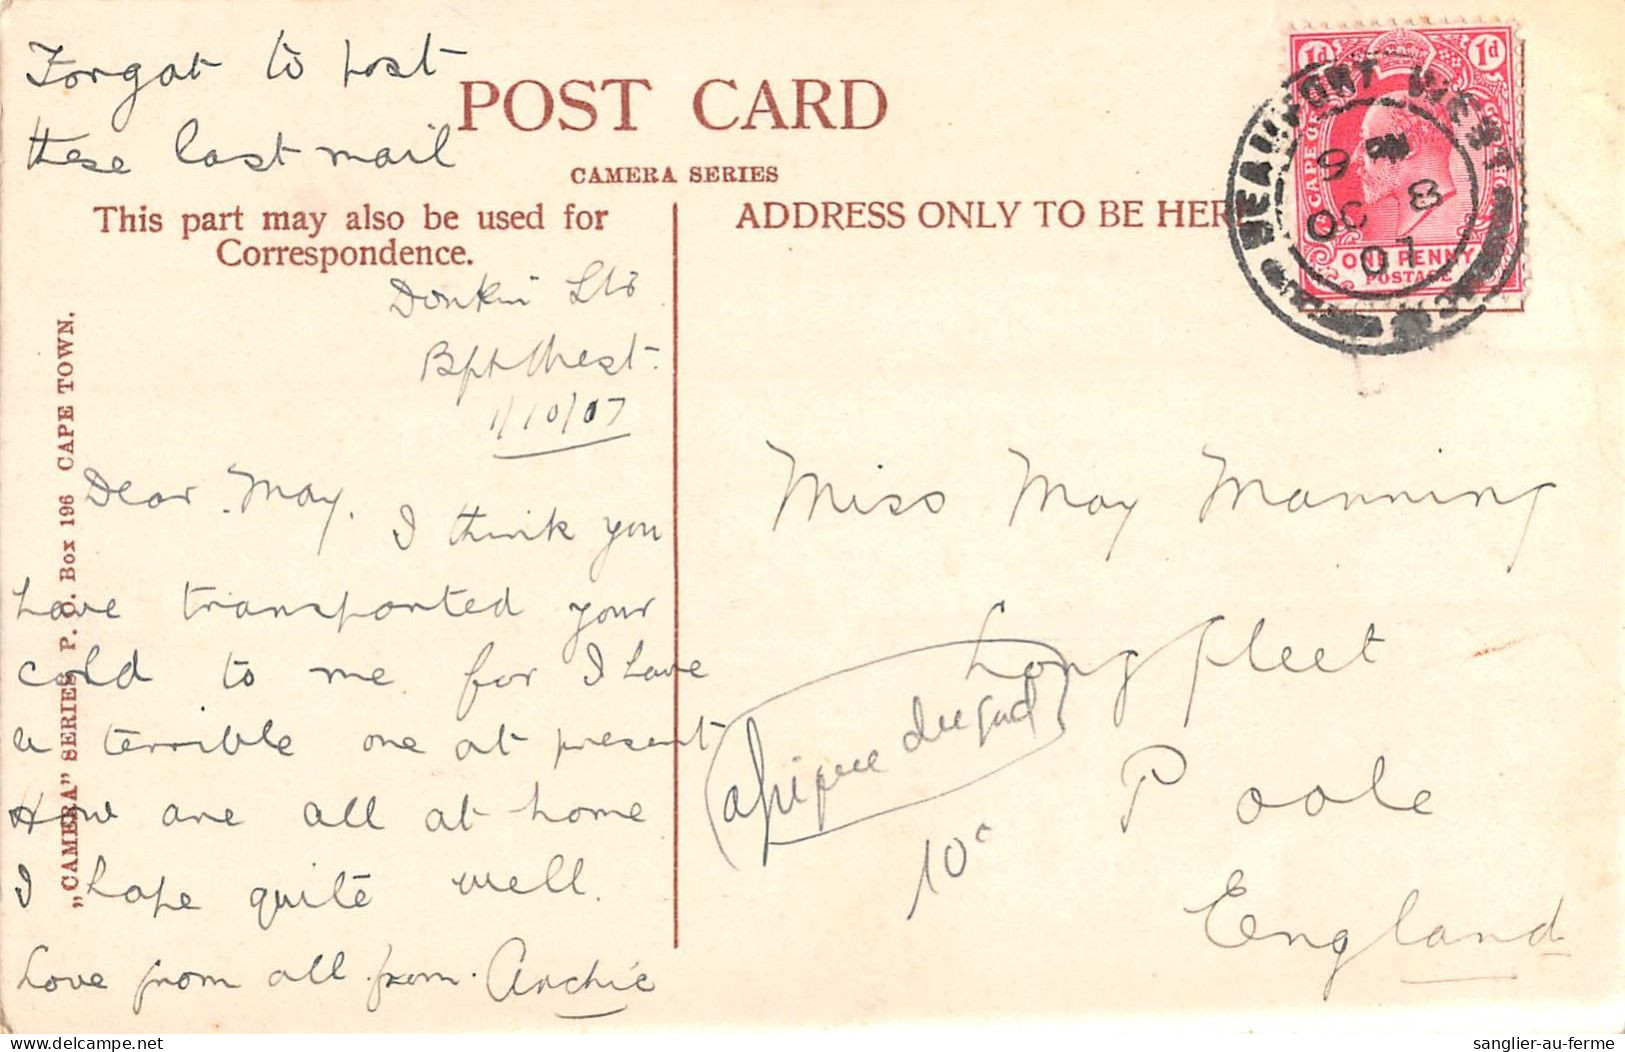 Forgot to post
these last mail
POST CARD
CAMERA SERIES
This part may also be used for
Correspondence.
ADDRESS ONLY TO BE HER
1d 1d
CAPE OF GOOD HOPE
ONE PENNY
POSTAGE
BEAUFORT WEST
9
OC 8
07
"CAMERA" SERIES P. O. Box 196 CAPE TOWN.
Donkin St
Bft West.
1/10/07
Dear May.
I think you
have transported your
cold to me for I have
a terrible one at present
How are all at home
I hope quite well.
Love from all from Archie
Miss May Manning
Longfleet
Poole
England
afrique du sud
10c
sanglier-au-ferme